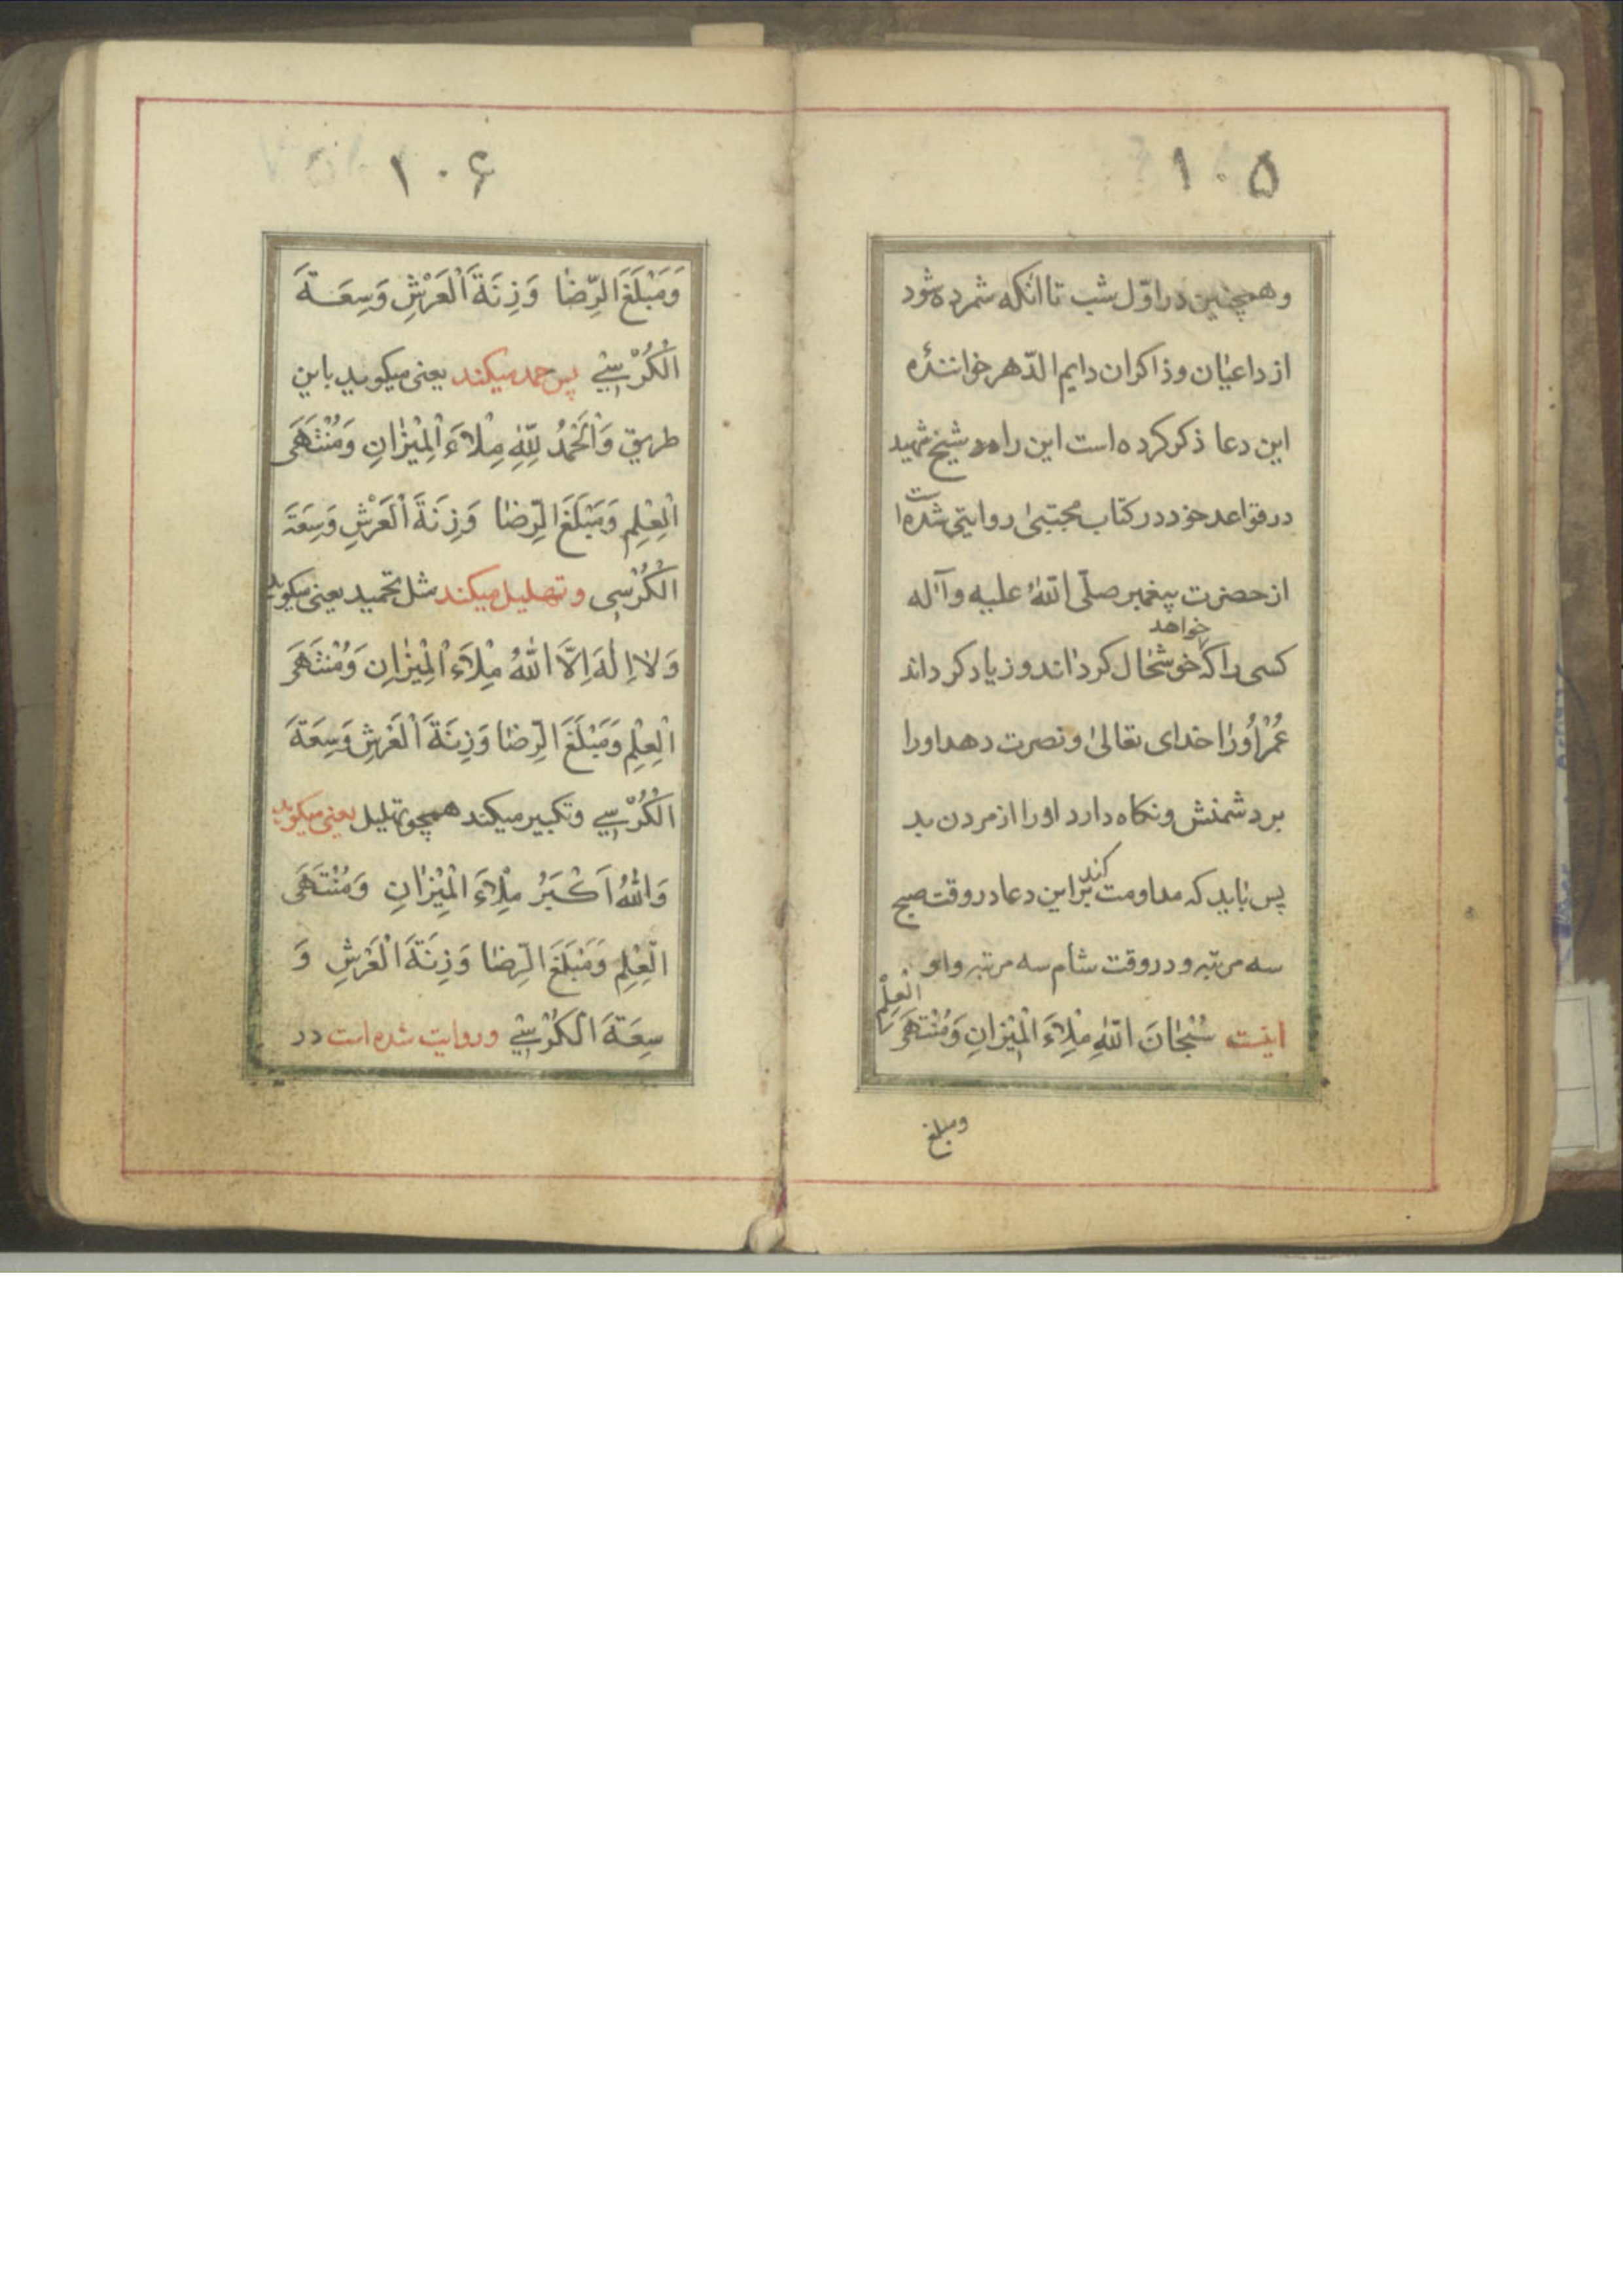 ۱۰۵
وهمچنین در اوّل شب تا آنکه شمرده شود
از داعیان و ذاکران دایم الدّهر خوانندهٔ
این دعا ذکر کرده است این را شیخ شهید
در قواعد خود در کتاب مجتبیٰ روایتی شده است
از حضرت پیغمبر صلّی اللهُ علیه و آله
کسی را که خواهد خوشحال کرداند و زیاد کرداند
عُمْرْ اُورٰا خدای تعالیٰ و نصرت دهد اورا
بر دشمنش و نکاه دارد اورا از مردن بد
پس باید که مداومت کند بر این دعا در وقت صبح
سه مرتبه و در وقت شام سه مرتبه و او
اینست سُبْحٰانَ اللّٰهِ مِلْاءَ الْمِیْزانِ وَمُنْتَهَی الْعِلْمِ
ومبلغ
۱۰۶
وَمَبْلَغَ الرِّضٰا وَزِنَةَ الْعَرْشِ وَسِعَةَ
الْکُرْسِيِّ پس حمد میکند یعنی میکوید باین
طریق وَالْحَمْدُ لِلّٰهِ مِلْاءَ الْمِیْزٰانِ وَمُنْتَهَی
الْعِلْمِ وَمَبْلَغَ الرِّضٰا وَزِنَةَ الْعَرْشِ وَسِعَةَ
الْکُرْسِی وتهلیل میکند مثل تحمید یعنی میکوید
وَلٰا اِلٰهَ اِلَّا اللّٰهُ مِلْاءَ الْمِیْزٰانِ وَمُنْتَهَی
الْعِلْمِ وَمَبْلَغَ الرِّضٰا وَزِنَةَ الْعَرْشِ وَسِعَةَ
الْکُرْسِيِّ وتکبیر میکند همچو تهلیل یعنی میکوید
وَاللّٰهُ اَکْبَرُ مِلْاءَ الْمِیْزٰانِ وَمُنْتَهَی
الْعِلْمِ وَمَبْلَغَ الرِّضٰا وَزِنَةَ الْعَرْشِ وَ
سِعَةَ الْکُرْسِيِّ وروایت شده است در